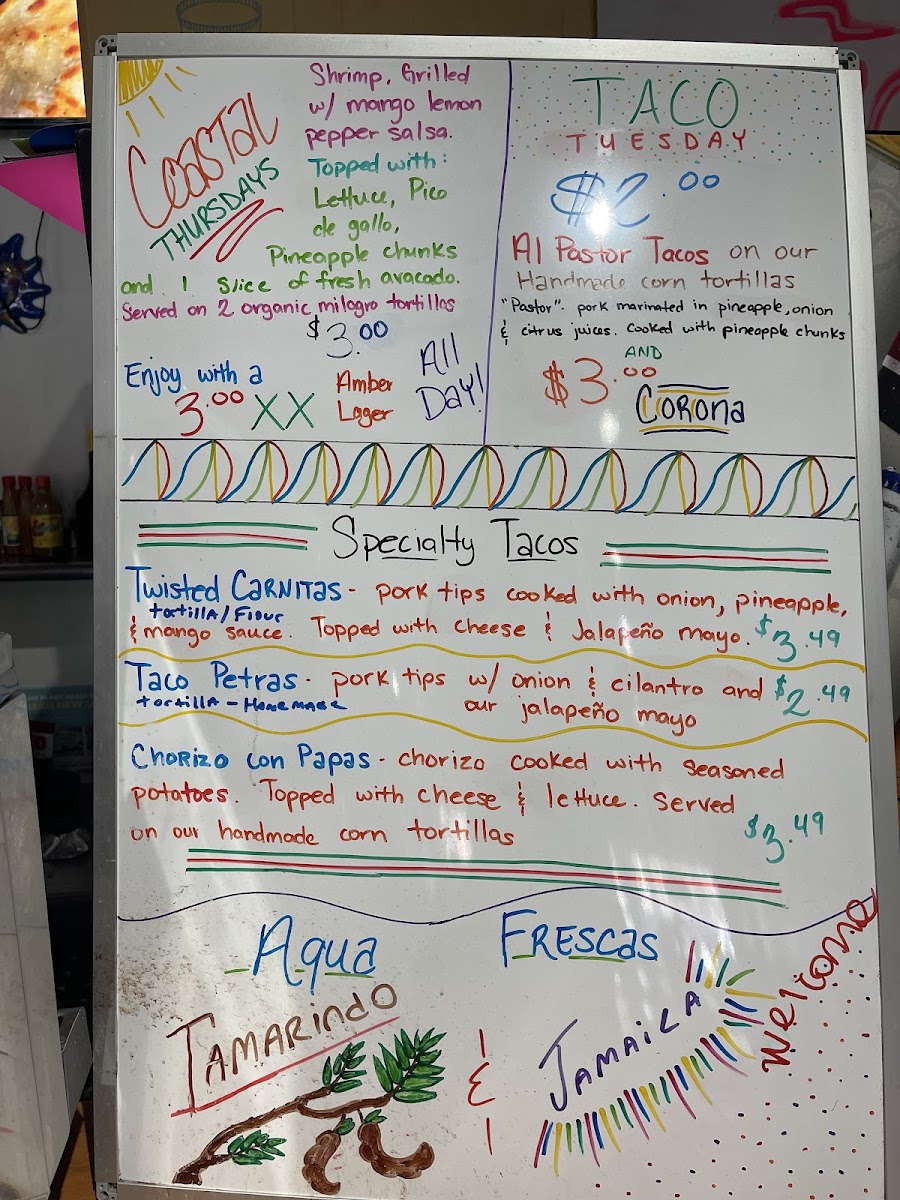 Coastal
Thursdays
Shrimp, Grilled
w/ mango lemon
pepper salsa.
Topped with:
Lettuce, Pico
de gallo,
Pineapple chunks
and 1 slice of fresh avacado.
Served on 2 organic milagro tortillas
$3.00
Enjoy with a
3.00 XX
Amber
Lager
All
Day!
TACO
TUESDAY
$2.00
Al Pastor Tacos on our
Handmade corn tortillas
"Pastor". pork marinated in pineapple, onion
& citrus juices. Cooked with pineapple chunks
AND
$3.00
Corona
Specialty Tacos
Twisted Carnitas - pork tips cooked with onion, pineapple,
tortilla/Flour
& mango sauce. Topped with cheese & Jalapeño mayo. $3.49
Taco Petras - pork tips w/ onion & cilantro and $2.49
tortilla - Homemade
our jalapeño mayo
Chorizo con Papas - chorizo cooked with seasoned
potatoes. Topped with cheese & lettuce. Served
on our handmade corn tortillas
$3.49
Aqua Frescas
Tamarindo
&
Jamaica
Welcome